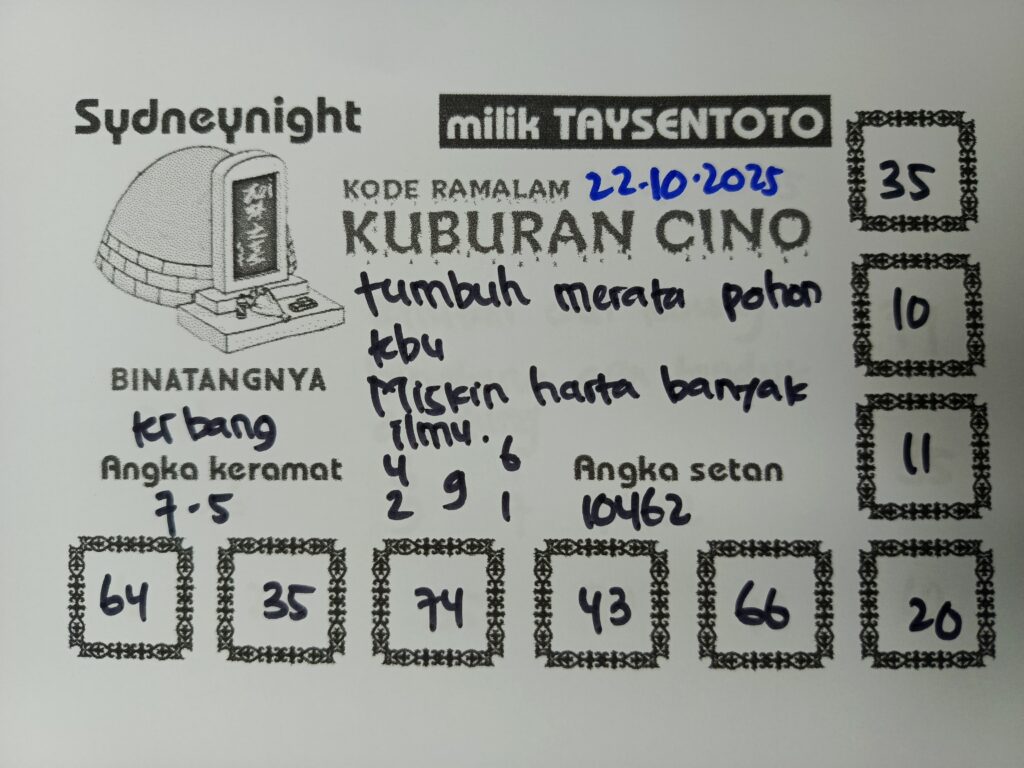 Sydneynight
milik TAYSENTOTO
KODE RAMALAM 22.10.2025
KUBURAN CINO
tumbuh merata pohon
tebu
Miskin harta banyak
ilmu.
BINATANGNYA
terbang
Angka keramat
7.5
4 6
9
2 1
Angka setan
10462
35
10
11
64 35 74 43 66 20